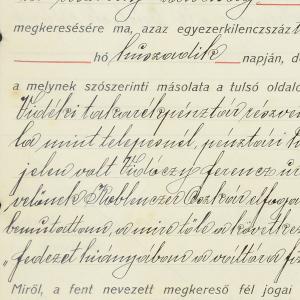 megkeresésére ma, azaz egyezerkilenczszázt
hó huszadik napján, d
a melynek szószerinti másolata a tulsó oldalo
Vidéki takarékpénztár részvén
la mint telepesnél, pénztári h
jelen volt Vidóczy ferencz úr
velőnek Koblenczer Oszkár elfoga
bemutattam, a mire tőle a követke
„fedezet hiányában a váltó a fiz
Miről, a fent nevezett megkereső fél jogai